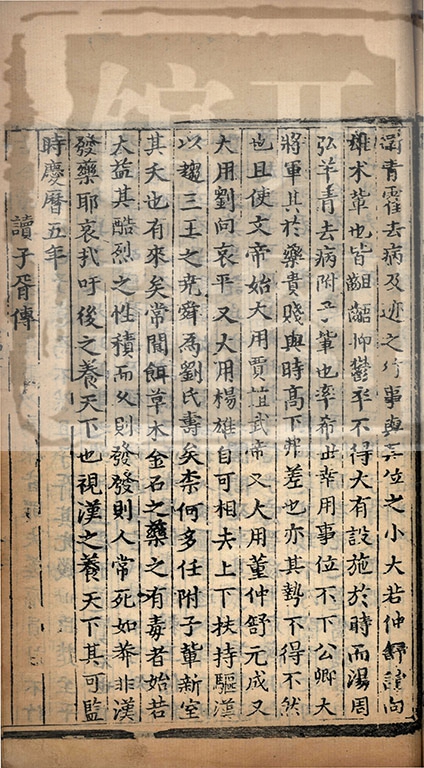 衛青霍去病及迹之行事與其位之小大若仲舒誼向
雄术軰也皆齟齬仰鬱卒不得大有設施於時而湯周
弘羊青去病附子軰也率希世幸用事位不下公卿大
將軍其於藥貴賤與時高下弗差也亦其勢不得不然
也且使文帝始大用賈誼武帝又大用董仲舒元成又
大用劉向哀平又大用楊雄自可相夫上下扶持驅漢
以趨三王之堯舜爲劉氏壽矣柰何多任附子軰新室
其夭也有來矣常聞餌草木金石之藥之有毒者始若
大益其酷烈之性積而久則發發則人常死如莽非漢
發藥耶哀㢤吁後之養天下也視漢之養天下其可監
時慶曆五年
讀子胥傳